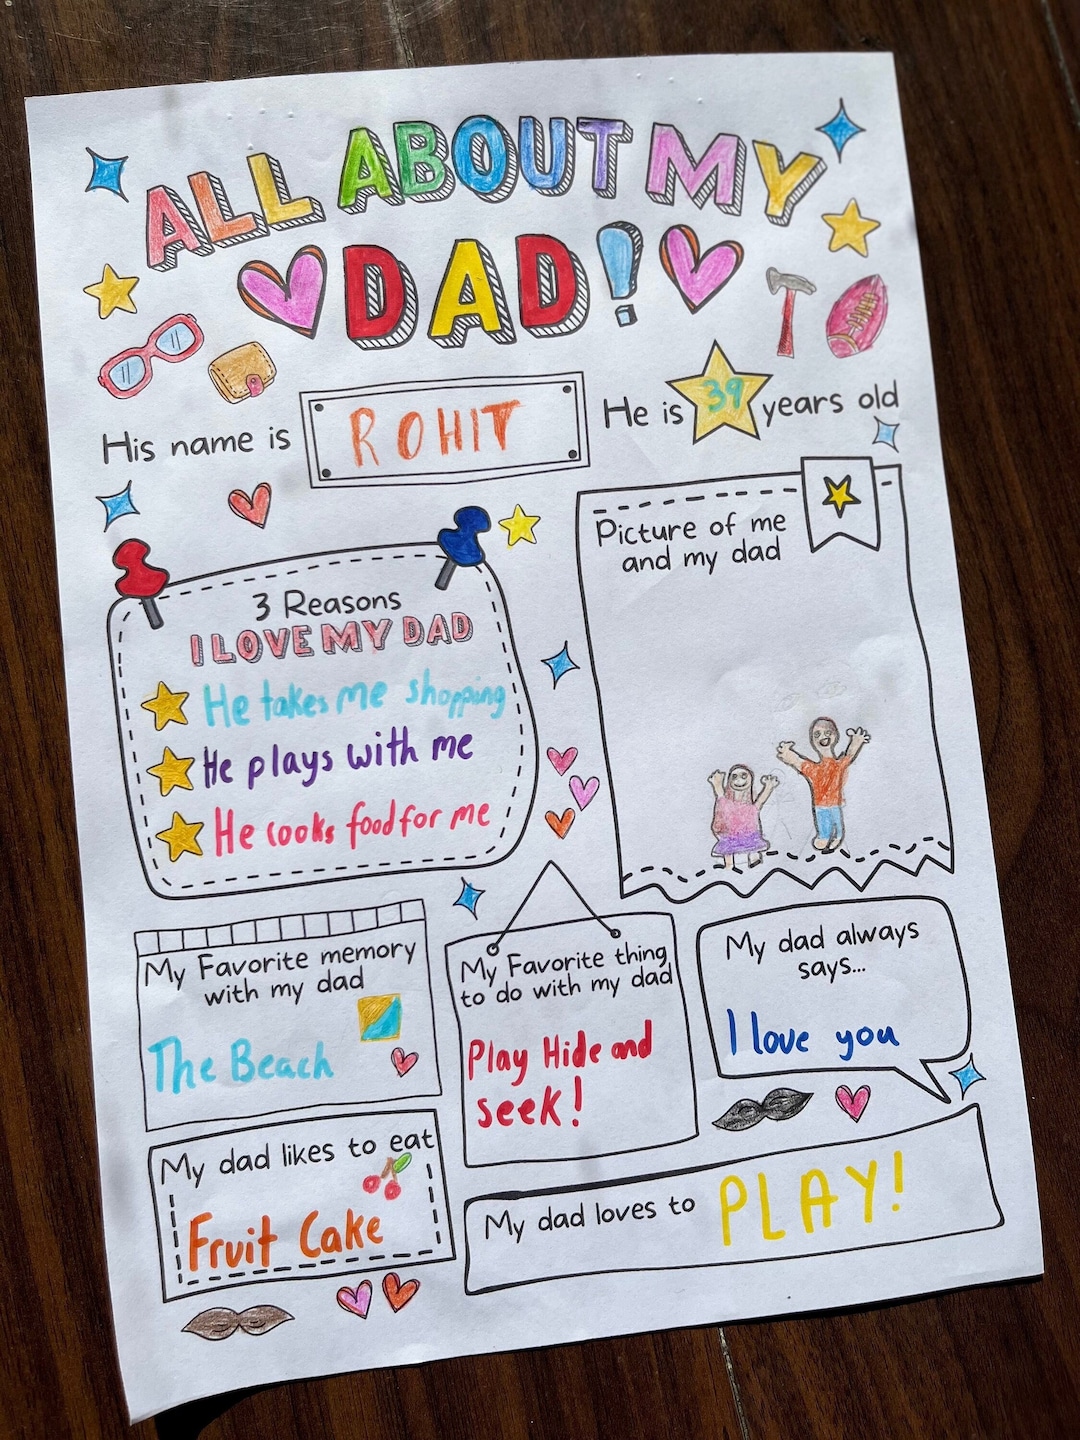 ALL ABOUT MY
DAD!
His name is ROHIT
He is 39 years old
3 Reasons
I LOVE MY DAD
He takes me shopping
He plays with me
He cooks food for me
Picture of me
and my dad
My Favorite memory
with my dad
The Beach
My Favorite thing
to do with my dad
Play Hide and
seek!
My dad always
says...
I love you
My dad likes to eat
Fruit Cake
My dad loves to PLAY!